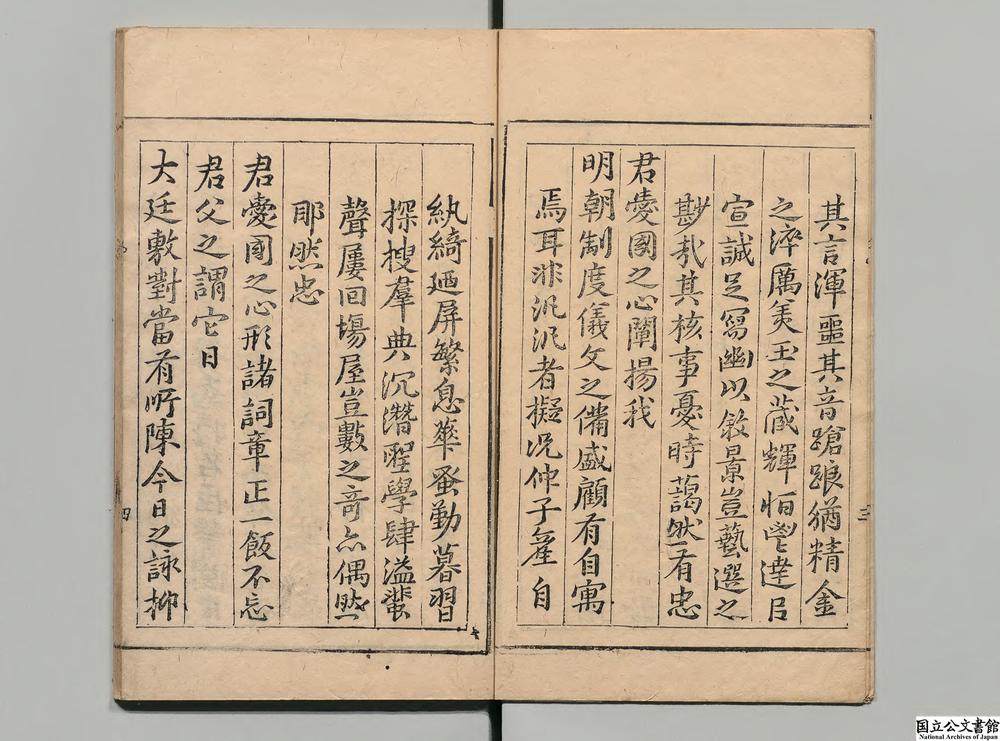 其言渾噩其音蹌踉猶精金
之淬厲美玉之藏輝怕鬯達㠯
宣誠足冩幽以敘景豈藝選之
尠哉其核事憂時藹然有忠
君愛國之心闡揚我
明朝制度儀文之備盛顧有自寓
焉耳非汎汎者擬況仲子產自
三
紈綺廼屏繁息華蚤勤暮習
探搜羣典沉潛聖學肆溢蜚
聲屢囘塲屋豈數之奇亦偶然
耶然忠
君愛國之心形諸詞章正一飯不忘
君父之謂它日
大廷敷對當有所陳今日之詠抑
四
国立公文書館
National Archives of Japan